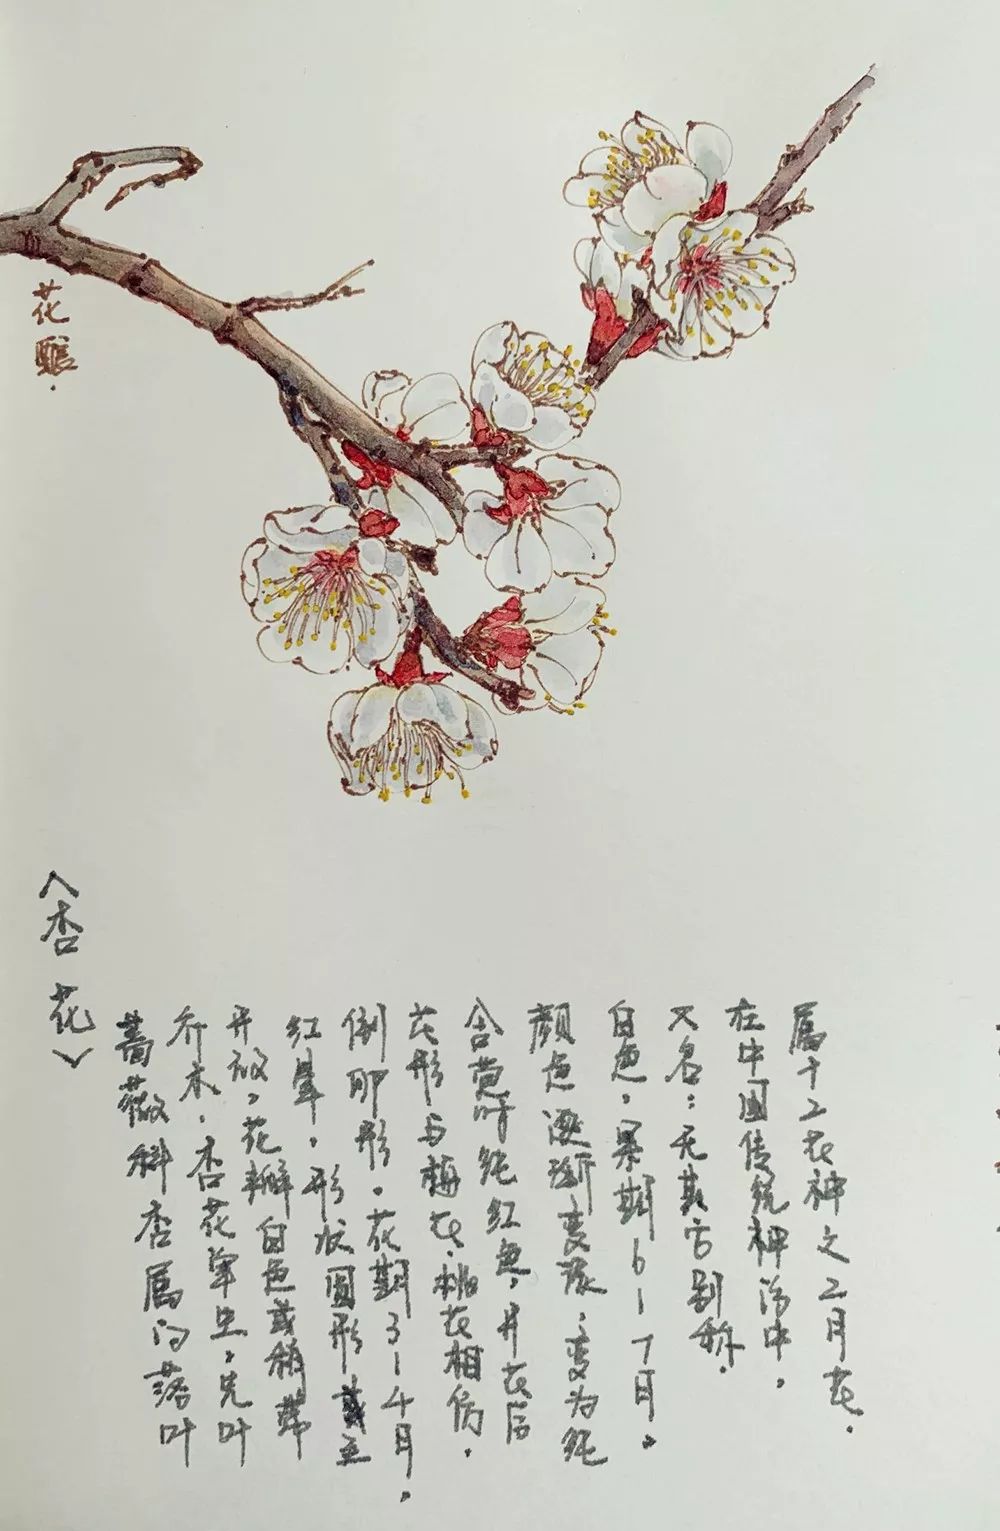 花
《杏花》
蔷薇科杏属的落叶
乔木。杏花单生，先叶
开放。花瓣白色或稍带
红晕。形状圆形或至
倒卵形。花期3-4月，
花形与梅花、桃花相仿。
含苞时纯红色，开花后
颜色逐渐变淡；变为纯
白色，果期6-7月。
又名：无其它别称.
在中国传统神话中，
属十二花神之二月花.